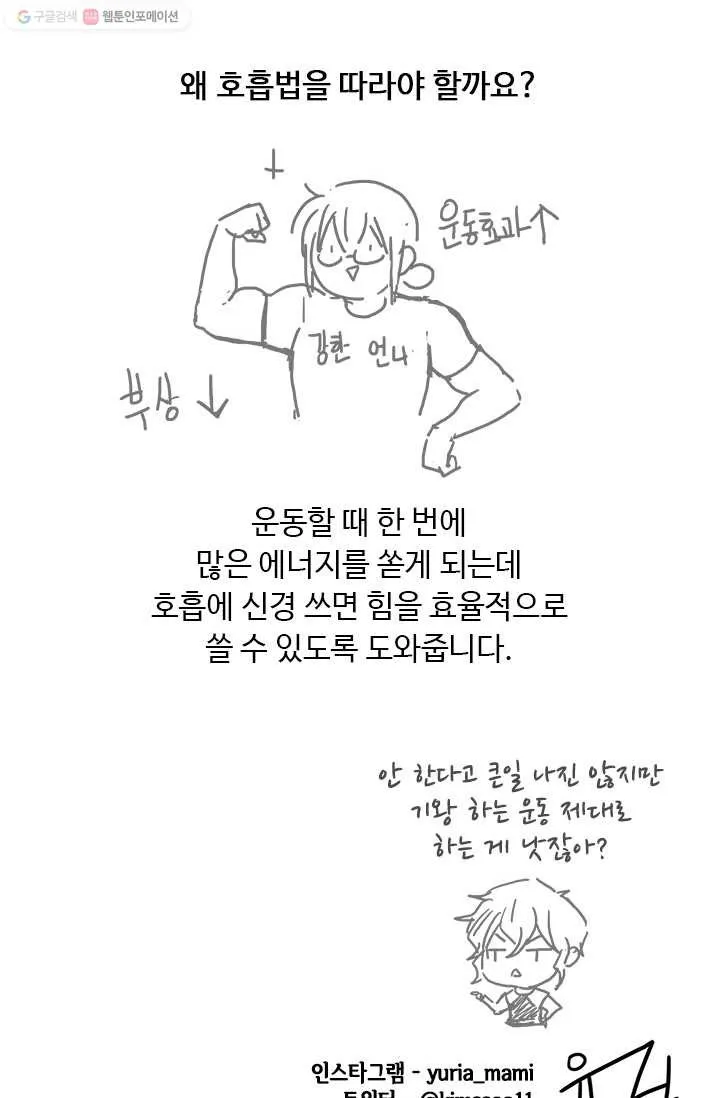 구글검색 웹툰인포메이션
왜 호흡법을 따라야 할까요?
운동효과↑
강한 언니
부상 ↓
운동할 때 한 번에
많은 에너지를 쏟게 되는데
호흡에 신경 쓰면 힘을 효율적으로
쓸 수 있도록 도와줍니다.
안 한다고 큰일 나진 않지만
기왕 하는 운동 제대로
하는 게 낫잖아?
인스타그램 - yuria_mami